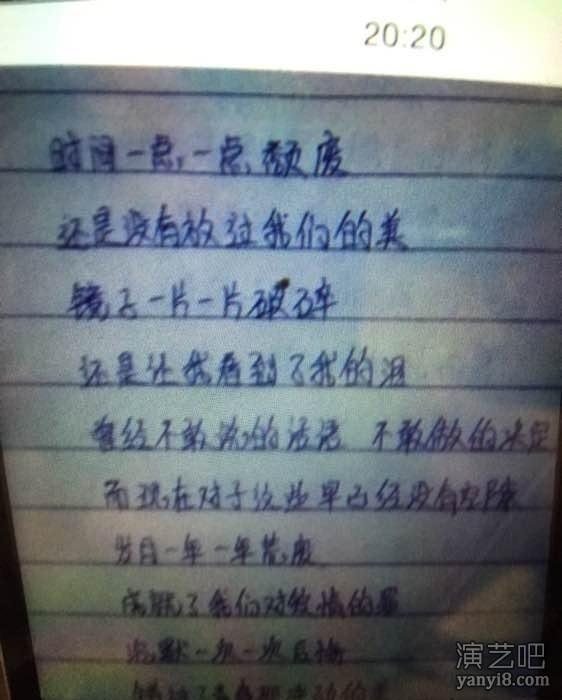 20:20
时间一点一点颓废
还是没有放过我们的美
镜子一片一片破碎
还是让我看到了我的泪
曾经不敢说的话语 不敢做的决定
而现在对于这些早已经没有
岁月一年一年荒废
我们对爱情的罪
沉默一次一次后悔
演艺吧
yanyi8.com